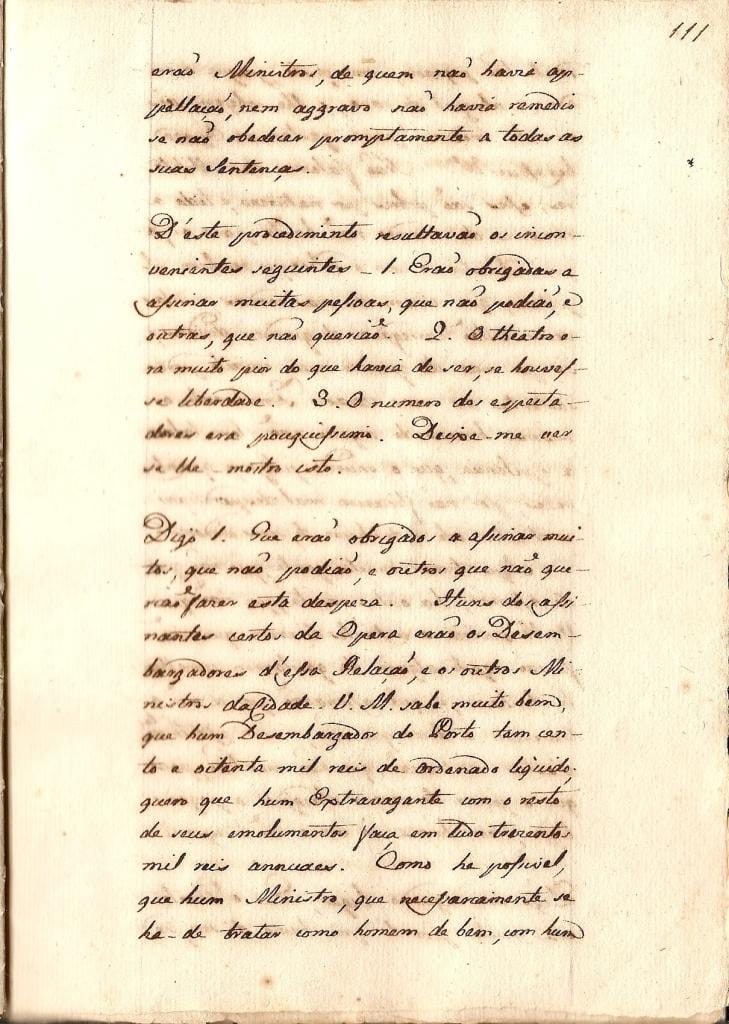 111
erão Ministros, de quem não havia ap-
pellação, nem aggravo não havia remedio
se não obedecer promptamente a todas as
suas Sentenças.
D'este procedimento resultavão os incon-
venientes seguintes - 1. Erão obrigadas a
assinar muitas pessoas, que não podião, e
outras, que não querião. 2. O theatro e-
ra muito pior do que havia de ser, se houves-
se liberdade. 3. O numero dos especta-
dores era pouquissimo. Deixe-me ver
se lhe mostro isto.
Digo 1. Que erão obrigados a assinar mui-
tos, que não podião, e outros que não que-
rião fazer esta despeza. Huns dos assi-
nantes certos da Opera erão os Desem-
bargadores d'essa Relação, e os outros Mi-
nistros da Cidade. V. M. sabe muito bem,
que hum Desembargador do Porto tem cen-
to e oitenta mil reis de ordenado liquido;
quero que hum Extravagante com o resto
de seus emolumentos faça em tudo trezentos
mil reis annuaes. Como he possivel,
que hum Ministro, que necessariamente se
ha-de tratar como homem de bem, com hum